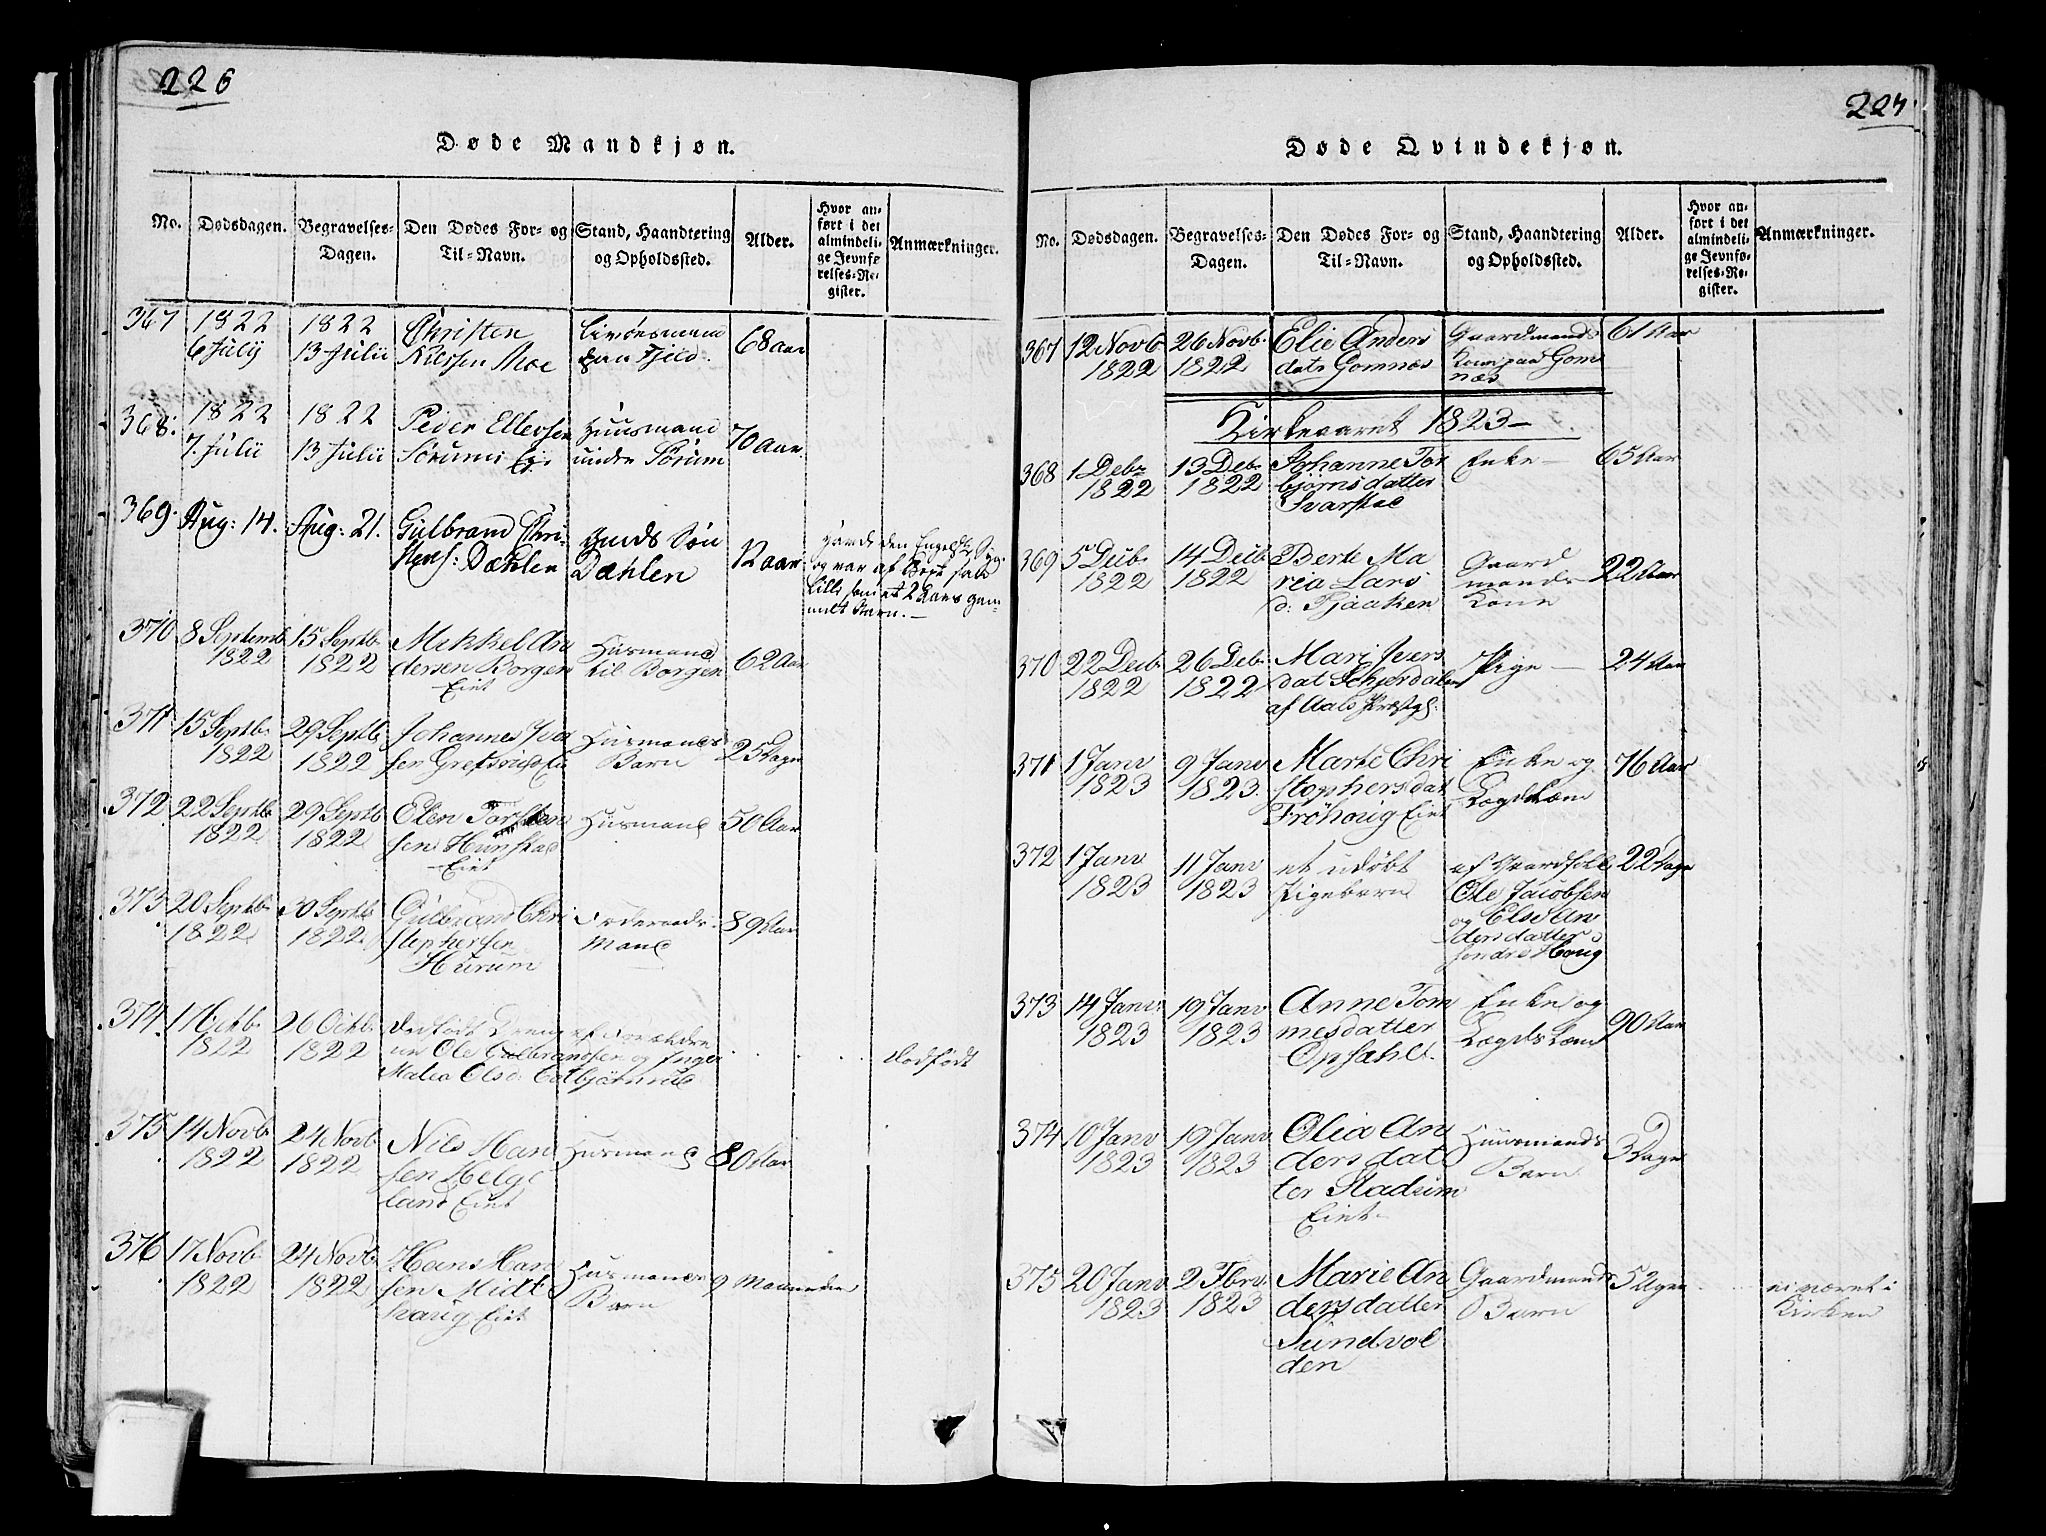 226
Døde Mandkjøn.
No.
Dødsdagen.
Begravelses-
Dagen.
Den Dødes For- og
Til-Navn.
Stand, Haandtering
og Opholdssted.
Alder.
Hvor an-
ført i det
almindeli-
ge Jevnfø-
relses-Re-
gister.
Anmærkninger.
367
1822
6 July
1822
13 Julii
Christen
Nilssen Moe
68 aar
368.
1822
7. Julii
1822
13 Julii
Peder Ellevsen
Sørums Ej:
Huusmand
under Sørum
70 Aar.
369.
Aug: 14.
Aug: 21.
Gulbrand Chri-
stens: Dæhlen
Gmds Søn
Dæhlen
12 aar
havde den Engelske Syg:
og var af Vext saa
lille som et 2 Aars gam-
melt Barn.
370
8 Septemb
1822
15 Septb
1822
Mikkel An
dersen Borgen
Eiet
Husmand
til Borgen
62 Aar
371
15 Septb
1822
29 Septb
1822
Johannes Iver
sen Grefsrud Ei
Husmands
Barn
25 Dage
372
22 Septb
1822
29 Septb
1822
Elen Torsten
sen Hunstad
Eiet
Husmand
50 Aar
373
20 Septb
1822
30 Septb
1822
Gulbrand Chri
stophersen
Hurum
Foderaads
Mand
89 Aar
374
17 Octb
1822
26 Octb
1822
dødfødt Dreng af Forældre
ne Ole Gulbrandsen og Inger
Malia Olsd: Totbjørnrud
dødfødt
375
14 Novb
1822
24 Novb
1822
Nils Han
sen Helge
land Eiet
Husmand
80 Aar
376
17 Novb
1822
24 Novb
1822
Hans Han
sen Midt
houg Eiet
Husmands
Barn
9 Maaneder
227
Døde Qvindekjøn.
No.
Dødsdagen.
Begravelses-
Dagen.
Den Dødes For- og
Til-Navn.
Stand, Haandtering
og Opholdssted.
Alder.
Hvor an-
ført i det
almindeli-
ge Jevnfø-
relses-Re-
gister.
Anmærkninger.
367
12 Novb
1822
26 Novb.
1822
Elie Anders
datr Gomnæs
Gaardmands
Kone paa Gom
næs
61 Aar
Kirkeaaret 1823
368
1 Debr
1822
13 Deb
1822
Johanne Tor
bjørnsdatter
Svarstad
Enke
65 Aar
369
5 Deib
1822
14 Deib
1822
Berte Ma
rea Lars
d: Tjaaken
Gaard
mands
Kone
22 Aar
370
22 Deib
1822
26 Deb
1822
Mari Ivers
dat Schjerdalen
af Aals Præstgl:
Pige
24 Aar
371
1 Janv
1823
9 Janv
1823.
Marte Chri
stophersdat
Frøhoug Eiet
Enke og
Lægdslem
76 Aar
372
1 Janv
1823
11 Janv
1823
et udøbt
Pigebarn
af Gaardfolk
Ole Jacobsen
og Else An
dersdatter
søndre Houg
22 Dage
373
14 Janv
1823
19 Janv
1823
Anne Tom
mesdatter
Opsahl.
Enke og
Lægdslem
90 Aar
374
10 Janv
1823
19 Janv
1823
Olia An
dersdat
ter Stadum
Eiet
Huusmands
Barn
3 Dage
375
20 Janv
1823
2 Fbrv
1823
Marie An
dersdatter
Sundvol
den
Gaardmands
Barn
5 Uger
ei været i
Kirken